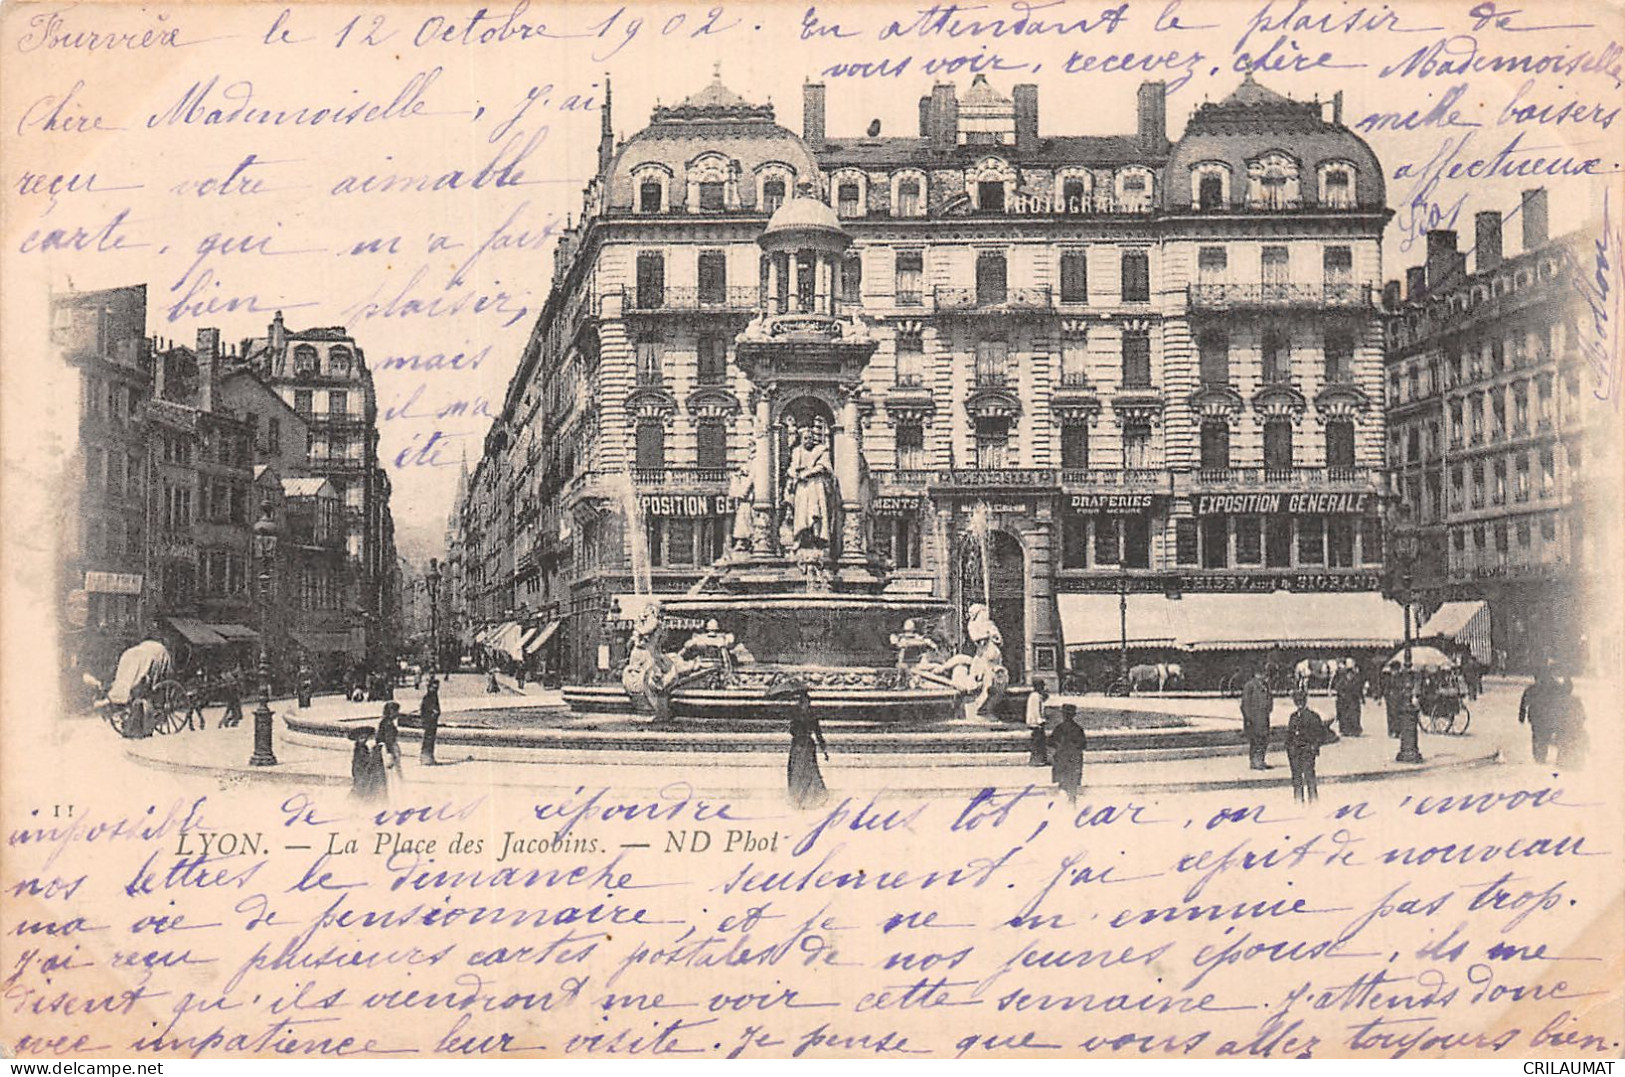 Fourvière le 12 Octobre 1902.
Chère Mademoiselle, J'ai
reçu votre aimable
carte, qui m'a fait
bien plaisir,
mais
il m'a
été
impossible de vous répondre plus tôt ; car, on n'envoie
nos lettres le dimanche seulement. J'ai reprit de nouveau
ma vie de pensionnaire ; et je ne m'ennuie pas trop.
J'ai reçu plusieurs cartes postales de nos jeunes époux, ils me
disent qu'ils viendront me voir cette semaine. J'attends donc
avec impatience leur visite. Je pense que vous allez toujours bien.
En attendant le plaisir de
vous voir, recevez, chère Mademoiselle,
mille baisers
affectueux.
PHOTOGRAPHIE
POSITION GE
MENTS
DRAPERIES
POUR MEUBLE
EXPOSITION GENERALE
11
LYON. — La Place des Jacobins. — ND Phot
CRILAUMAT